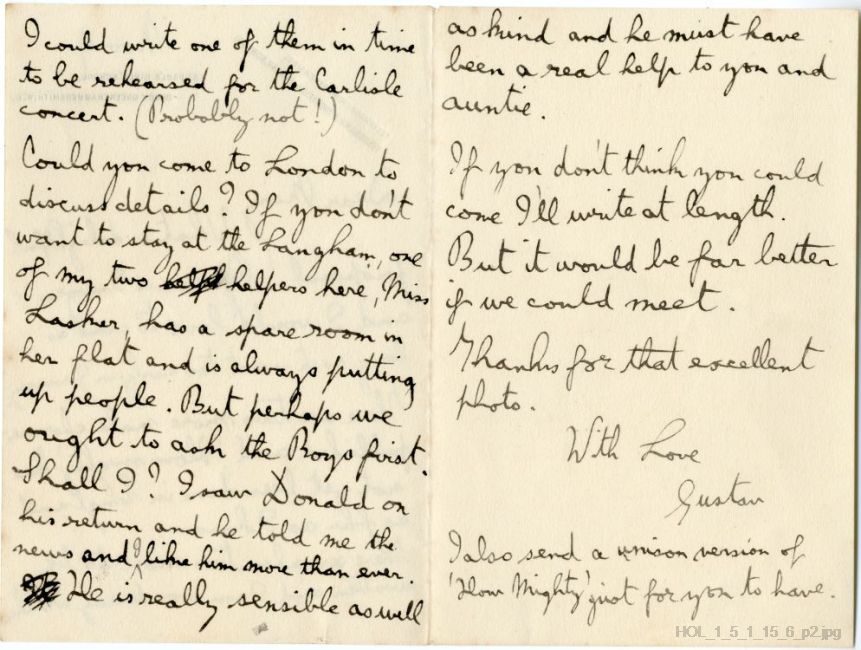 I could write one of them in time
to be rehearsed for the Carlisle
concert. (Probably not!)
Could you come to London to
discuss details? If you don't
want to stay at the Langham, one
of my two helpers here, Miss
Lasker, has a spare room in
her flat and is always putting
up people. But perhaps we
ought to ask the Boys first.
Shall I? I saw Donald on
his return and he told me the
news and I like him more than ever.
He is really sensible as well
as kind and he must have
been a real help to you and
auntie.
If you don't think you could
come I'll write at length.
But it would be far better
if we could meet.
Thanks for that excellent
photo.
With Love
Gustav
I also send a unison version of
'How Mighty' just for you to have.
HOL_1_5_1_15_6_p2.jpg